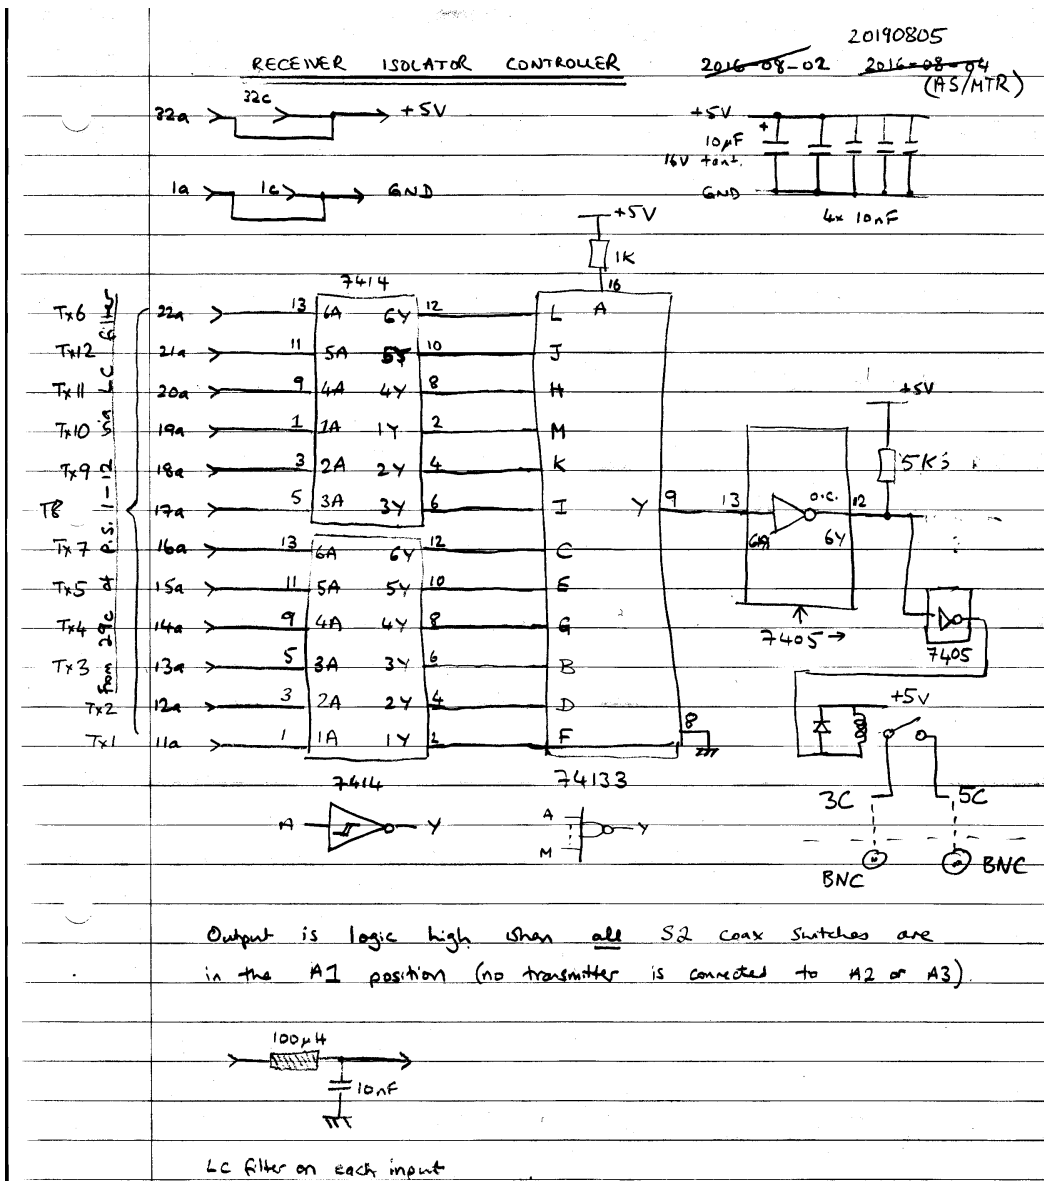 20190805
RECEIVER ISOLATOR CONTROLLER 2016-08-02 2016-08-04
(AS/MTR)
32a 32c +5V
+5V
+ 10µF
16V tant.
1a 1c GND
GND
4x 10nF
+5V
1K
16
7414
Tx6 22a 13 6A 6Y 12 L A
Tx12 21a 11 5A 5Y 10 J
Tx11 20a 9 4A 4Y 8 H
+5V
Tx10 19a 1 1A 1Y 2 M
Tx9 18a 3 2A 2Y 4 K
5K3
T8 17a 5 3A 3Y 6 I Y 9 13 o.c. 12
6A 6Y
Tx7 16a 13 6A 6Y 12 C
Tx5 15a 11 5A 5Y 10 E
Tx4 14a 9 4A 4Y 8 G
7405 →
7405
Tx3 13a 5 3A 3Y 6 B
Tx2 12a 3 2A 2Y 4 D
+5V
Tx1 11a 1 1A 1Y 2 F 8
from 29c of P.S. 1-12 via LC filter
7414 74133
3C 5C
A Y
A
M Y
BNC BNC
Output is logic high when all S2 coax switches are
in the A1 position (no transmitter is connected to A2 or A3).
100µH
10nF
LC filter on each input